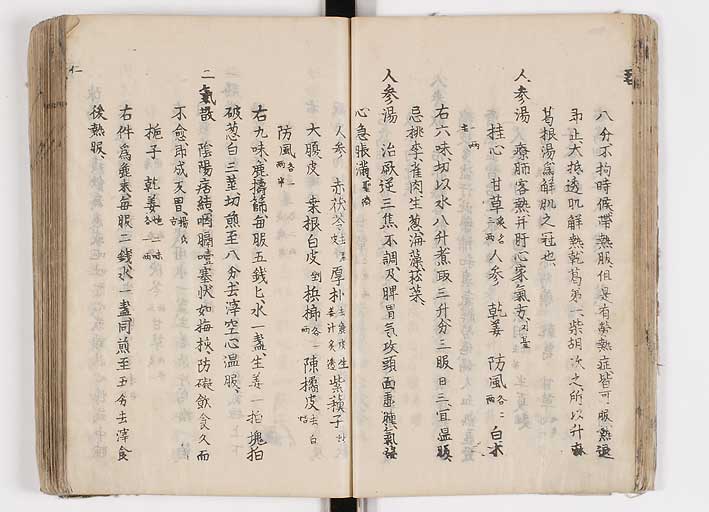 八分不拘時候帶熱服但是有勞熱症皆可服熱退
即止大抵透肌解熱乾葛第一柴胡次之所以升麻
葛根湯為解肌之冠也
人參湯 療肺客熱并肝心家氣方
桂心 甘草 人參 乾姜 防風各二兩 白朮
一兩
右六味切以水八升煮取三升分三服日三宜温服
忌挑李雀肉生葱海藻菘菜
人參湯 治厥逆三焦不調及脾胃気攻頭面虛腫氣
心急脹滿
人參 赤茯苓 厚朴 去麁皮生姜汁炙透 紫蘓子
大腹皮 桑根白皮剉 梹榔各一兩 陳橘皮去白
防風各一兩半
右九味麁擣篩每服五錢匕水一盞生姜一指塊拍
破葱白三莖切煎至八分去滓空心温服
二氣散 陰陽痞結咽膈噎塞状如梅核防礙飲食久而
不愈即成反胃楊氏
梔子 乾姜各一兩
右件為麁末每服二錢水一盞同煎至五分去滓食
後熱服
仁